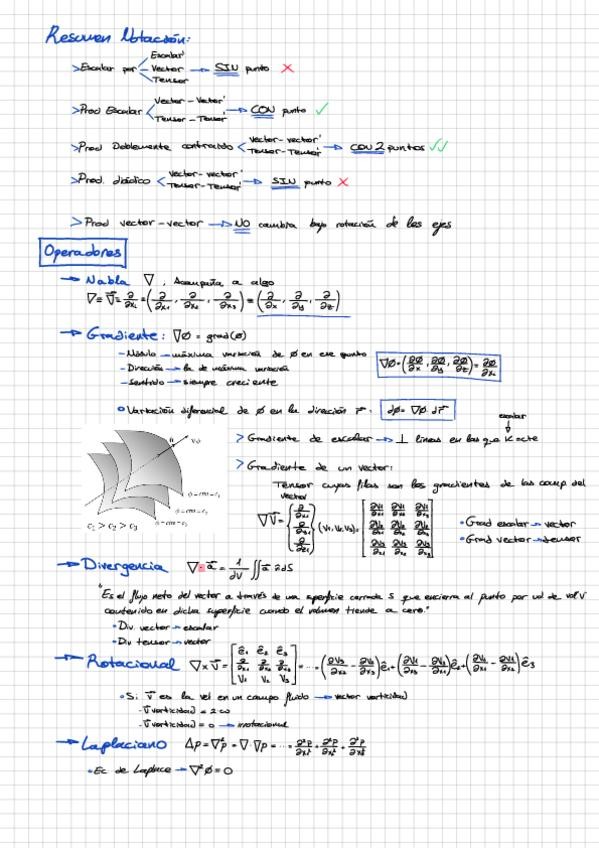 Resumen Notación:
Escalar
>Escalar por Vector → SIN punto ✗
Tensor
>Prod Escalar Vector - Vector → CON punto ✓
Tensor - Tensor
>Prod Doblemente contraído Vector - vector → CON 2 puntos ✓✓
Tensor - Tensor
>Prod. diádico Vector - vector → SIN punto ✗
Tensor - Tensor
>Prod vector - vector → NO cambia bajo rotación de los ejes
Operadores
→ Nabla ∇, Acompaña a algo
∇ = ∇⃗ = ∂/∂xᵢ = (∂/∂x₁, ∂/∂x₂, ∂/∂x₃) = (∂/∂x, ∂/∂y, ∂/∂z)
→ Gradiente: ∇ø = grad(ø)
- Módulo → máxima variación de ø en ese punto
- Dirección → la de máxima variación
- Sentido → siempre creciente
∇ø = (∂ø/∂x, ∂ø/∂y, ∂ø/∂z) = ∂ø/∂xᵢ
• Variación diferencial de ø en la dirección r⃗: dø = ∇ø · dr⃗
escalar
> Gradiente de escalar → ⊥ líneas en las que K octe
> Gradiente de un vector:
Tensor cuyas filas son los gradientes de las comp del
vector
∇V⃗ = {∂/∂x₁ ∂/∂x₂ ∂/∂x₃} (V₁, V₂, V₃) = [∂V₁ ∂V₁ ∂V₁
• Grad escalar → vector
• Grad vector → tensor
c₁ > c₂ > c₃
→ Divergencia ∇ · a⃗ = 1/dV ∬ a⃗ n̂ dS
"Es el flujo neto del vector a través de una superficie cerrada S que encierra al punto por ud de vol V
contenido en dicha superficie cuando el volumen tiende a cero."
• Div vector → escalar
• Div tensor → vector
→ Rotacional ∇ × V⃗ = [ê₁ ê₂ ê₃; ∂/∂x₁ ∂/∂x₂ ∂/∂x₃; V₁ V₂ V₃] = ... = (∂V₃/∂x₂ - ∂V₂/∂x₃) ê₁ + (∂V₁/∂x₃ - ∂V₃/∂x₁) ê₂ + (∂V₂/∂x₁ - ∂V₁/∂x₂) ê₃
• Si V⃗ es la vel en un campo fluido → vector vorticidad
- V⃗vorticidad = 2ω
- V⃗vorticidad = 0 → irrotacional
→ Laplaciano Δp = ∇²p = ∇ · ∇p = ... = ∂²p/∂x₁² + ∂²p/∂x₂² + ∂²p/∂x₃²
• Ec de Laplace → ∇²ø = 0